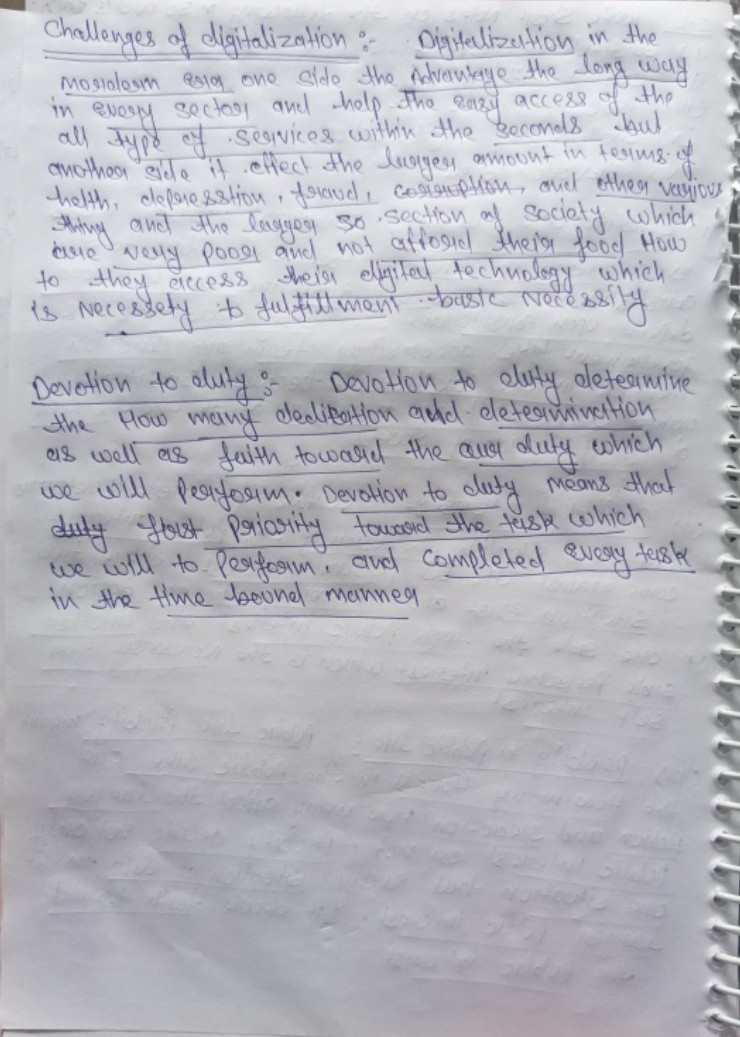 Challenges of digitalization :- Digitalization in the
morodern era one side the Advantage the long way
in every sector and help the easy access of the
all type of services within the seconds but
another side it effect the larger amount in terms of
helth, depresstion, fraud, corruption, and other various
thing and the larger so section of society which
are very poor and not afford their food How
to they access their digital technology which
is necessety to fulfillment basic necessity
Devotion to duty :- Devotion to duty determine
the How many dedication and determination
as well as faith toward the our duty which
we will perform. Devotion to duty means that
duty first priority toward the task which
we will to perform, and completed every task
in the time bound manner